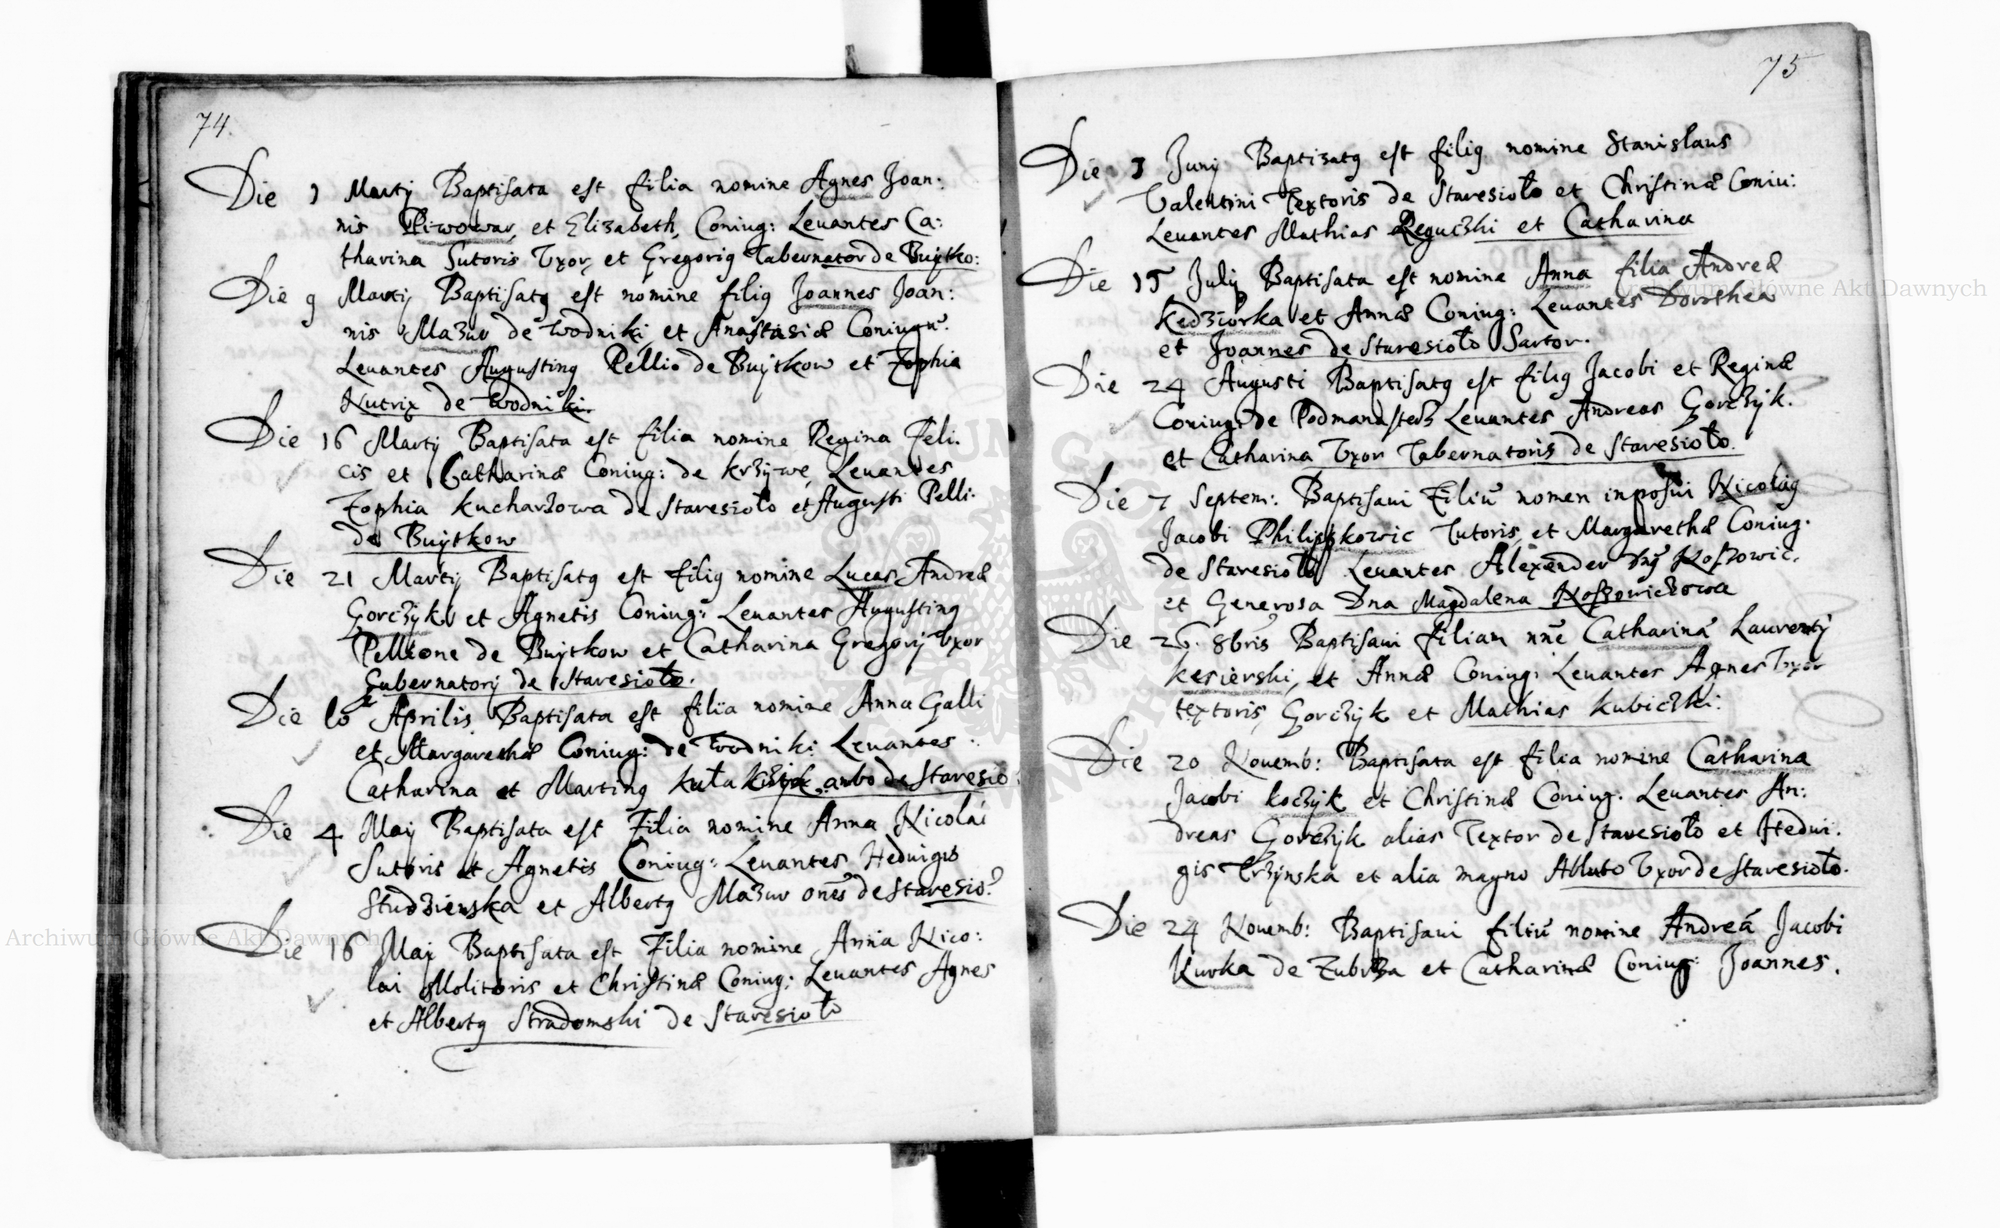 74.
Die 1 Martij Baptisata est filia nomine Agnes Joan:
nis Piwowar, et Elizabeth, Coniug: Leuantes Ca:
tharina Sutoris Uxor, et Gregorig Tabernator de Buÿtko:
Die 9 Martij Baptisatg est nomine filig Joannes Joan:
nis Mazur de Wodniki, et Anastasiæ Coniugū.
Leuantes Augusting Pellio de Buÿtkow et Zophia
Nutrix de Wodniki.
Die 16 Martij Baptisata est filia nomine Regina Feli.
cis et Catharinæ Coniug: de krzÿwe, Leuantes
Zophia kucharzowa de Staresioło et Augusti Pelli:
de Buÿtkow
Die 21 Martij Baptisatg est filig nomine Lucas Andreæ
Gorczÿk et Agnetis Coniug: Leuantes Augusting
Pellione de Buÿtkow et Catharina Gregorÿ Uxor
Gubernatorÿ de Staresioło.
Die 10 Aprilis Baptisata est filia nomine Anna Galli
et Margarethæ Coniug: de Wodniki Leuantes
Catharina et Marting kuła ambo de Staresio:
Die 4 Maij Baptisata est Filia nomine Anna Nicolai
Sutoris et Agnetis Coniug: Leuantes Heduigis
Studzienska et Albertg Mazur oñes de Staresio:
Die 16 Maij Baptisata est Filia nomine Anna Nico:
lai Molitoris et Christinæ Coniug: Leuantes Agnes
et Albertg Stradomski de Staresioło
75
Die 3 Junij Baptisatg est filig nomine Stanislaus
Valentini Textoris de Staresioło et Christinæ Coniu:
Leuantes Mathias Reguczki et Catharina
Die 15 Julij Baptisata est nomine Anna filia Andreæ
kędziorka et Annæ Coniug: Leuantes Dorothea
et Joannes de Staresioło Sartor.
Die 24 Augusti Baptisatg est filig Jacobi et Reginæ
Coniug: de Podmanasterz Leuantes Andreas Gorczÿk.
et Catharina Uxor Tabernatoris de Staresioło.
Die 7 Septem: Baptisaui Filiū nomen inposui Nicolag
Jacobi Philipkowic Sutoris, et Margarethæ Coniug.
de Staresioło Leuantes Alexander Dng Koszowic.
et Generosa Dna Magdalena Koszowiczowa
Die 26. 8bris Baptisaui filiam nñe Catharinā Laurentÿ
kesierski, et Annæ Coniug: Leuantes Agnes Uxor
textoris, Gorczÿk et Mathias kubiczki:
Die 20 Nouemb: Baptisata est filia nomine Catharina
Jacobi koczÿk et Christinæ Coniug. Leuantes An:
dreas Gorczÿk alias Textor de Staresioło et Hedui.
gis Trzÿnska et alia magno Uxor de Staresioło.
Die 24 Nouemb: Baptisaui filiū nomine Andreā Jacobi
Kurka de Zubrza et Catharinæ Coniug: Joannes.
Archiwum Główne Akt Dawnych
Archiwum Główne Akt Dawnych